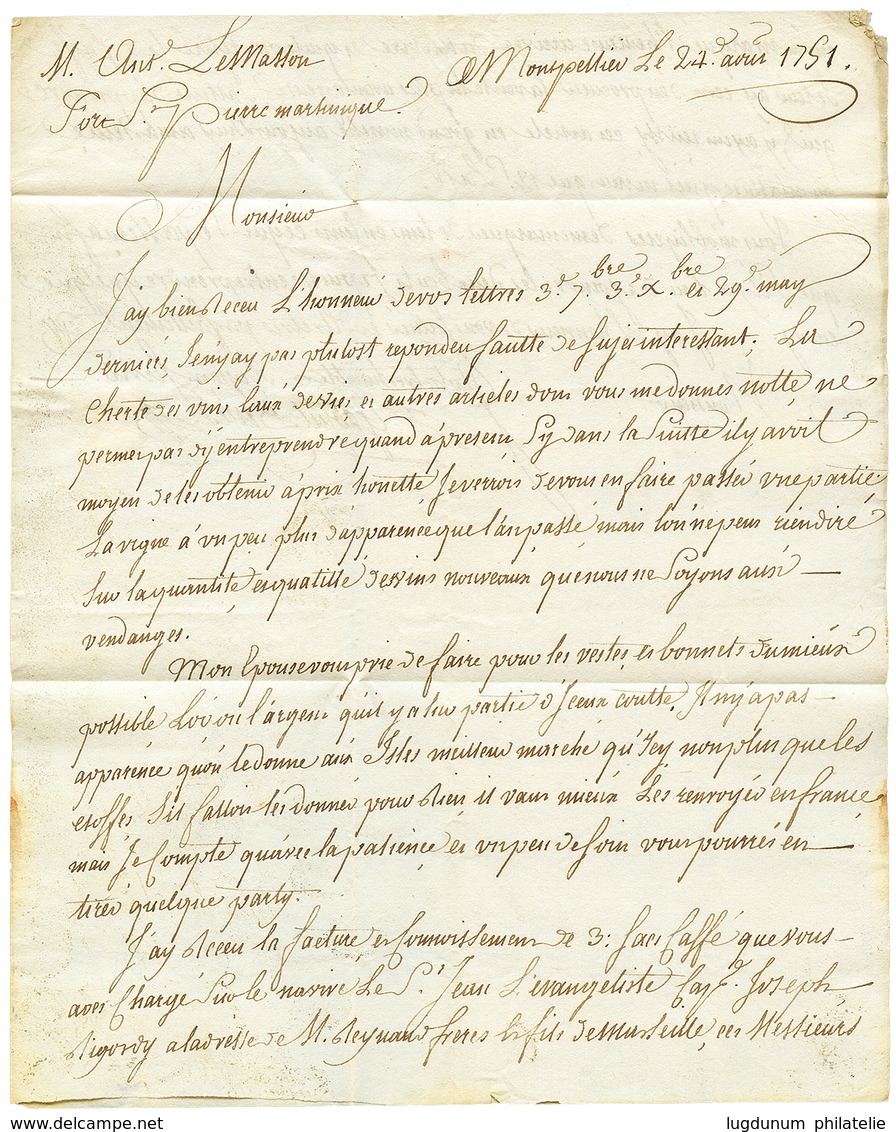 M. Ant.e LeMasson
A Montpellier Le 24.e aoust 1751.
Fort St Pierre martinique
Monsieur
J'ay bien Receu L'honneur de vos lettres 3.e 7.bre 3. X.bre et 29.e may
derniers, Je n'y ay pas plutost repondeu fautte de sujet interessant; La
Cherté des vins Eaux de vies et autres articles dont vous me donnes notte, ne
permet pas d'y entreprendre quand à present Sy dans la Suitte il y avoit
moyen de les obtenir à prix honette Je verrois de vous en faire passer une partie.
La vigne à un peu plus d'apparence que l'an passé, mais l'on ne peut rien dire
Sur la quantité et qualitté des vins nouveaux que nous ne Soyons aux
vendanges.
Mon Epouse vous prie de faire pour les vestes et bonnets du mieux
possible L'or ou l'argent qu'il y a leur partie d'Iceux coutte, Il n'y a pas
apparence qu'on le donne aux Isles meilleur marché qu'Icy non plus que les
etoffes, S'il falloit les donner pour Rien, il vaut mieux Les renvoyer en france
mais Je Compte qu'avec la patience et un peu de Soin vous pourrés en
tirer quelque party.
J'ay Receu la facture et Connoissement de 3: Sacs Caffé que vous
avés Chargé Sur le navire Le St Jean L'evangeliste Cap.e Joseph
Rigordy a la adresse de M. Reynaud freres & fils de Marseille, ces Messieurs
www.delcampe.net
lugdunum philatelie